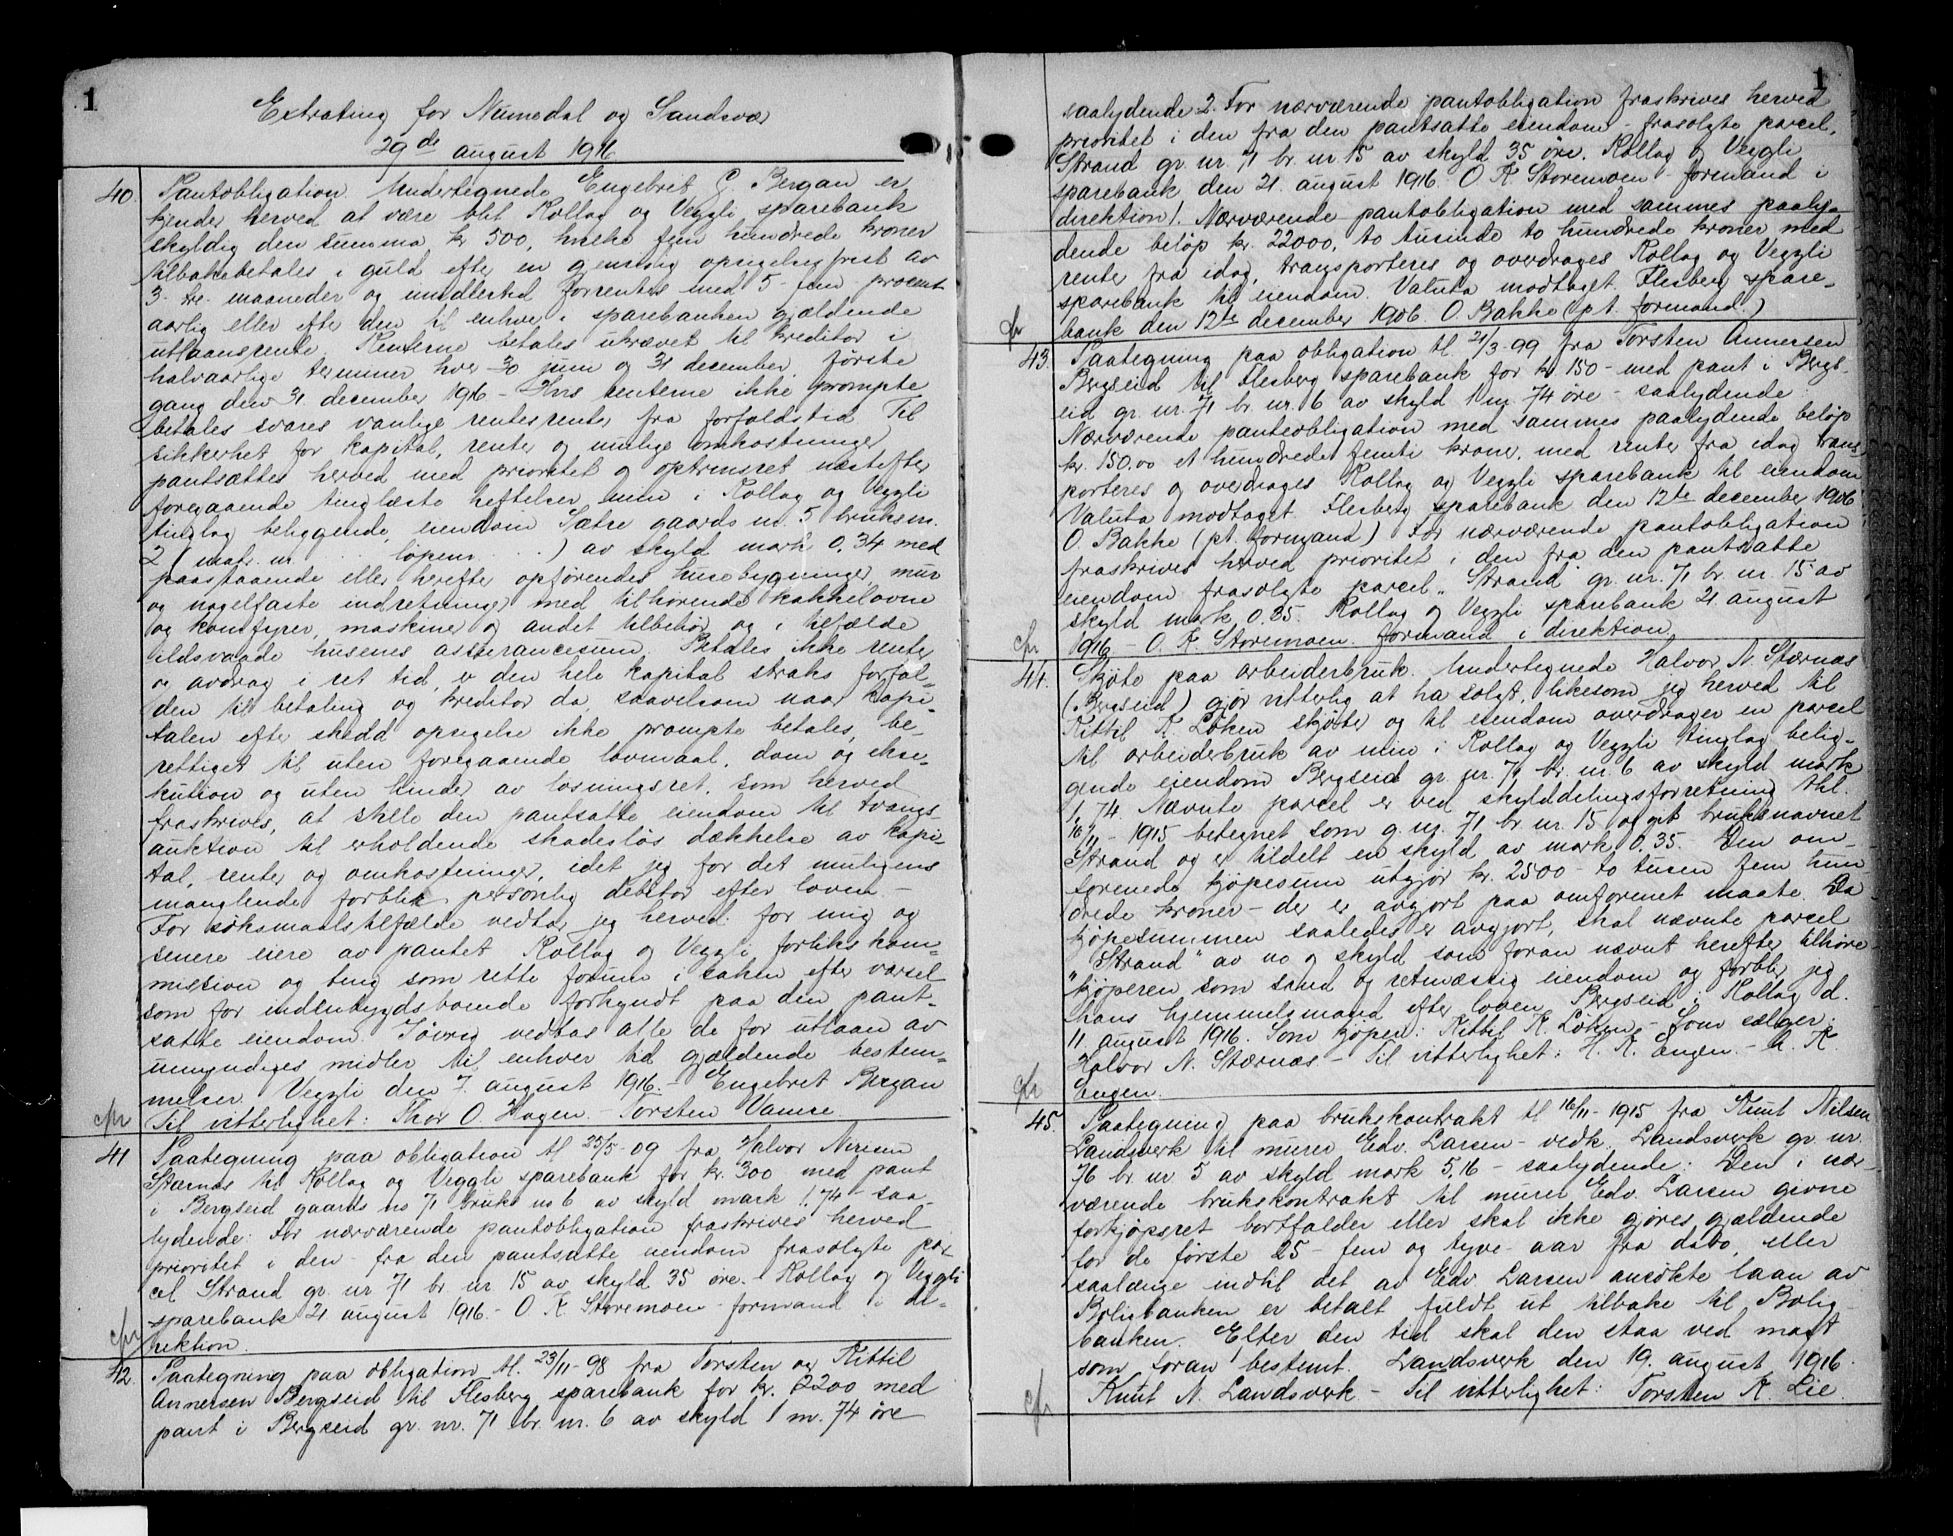 1
Extrating for Numedal og Sandsvær
29de august 1916
40. Pantobligation. Undertegnede Engebret G. Bergan er
kjender herved at være blit Rollag og Veggli sparebank
skyldig den summa kr 500, hvilke fem hundrede kroner
tilbakebetales i guld efter en gjensidig opsigelsesfrist av
3 - tre - maaneder og imidlertid forrentes med 5 - fem procent
aarlig eller efter den til enhver i sparebanken gjældende
utlaansrente. Renterne betales ukrævet til kreditor i
halvaarlige terminer hver 30 juni og 31 december, første
gang den 31. december 1916 - Hvis renterne ikke prompte
betales svares vanlige rentesrenter fra forfaldstid. Til
sikkerhet for kapital, renter og mulige omkostninger
pantsættes herved med prioritet og optrinsret næstefter
foregaaende tinglæste heftelser min i Rollag og Veggli
tinglag beliggende eiendom Sætre gaards nr. 5 bruksnr.
2 (matr. nr. ... løpenr. ...) av skyld mark 0,34 med
paastaaende eller herefter opførendes husebygninger, mur
og nagelfaste indretninger med tilhørende kakkelovne
og komfyrer, maskiner og andet tilbehør og i tilfælde
ildsvaade husenes assurancesum. Betales ikke renter
og avdrag i ret tid, er den hele kapital straks forfal-
den til betaling og kreditor da, saavelsom naar kapi-
talen efter skedd opsigelse ikke prompte betales, be-
rettiget til uten foregaaende lovmaal, dom og ekse-
kution og uten hinder av løsningsret, som herved
fraskrives, at stille den pantsatte eiendom til tvangs-
auktion til erholdende skadesløs dækkelse av kapi-
tal, renter og omkostninger, idet jeg for det muligens
manglende forblir personlig debitor efter loven. -
For søksmaalstilfælde vedtar jeg herved for mig og
senere eiere av pantet Rollag og Veggli forlikskom-
mission og ting som rette forum i saken efter varsel
som for indenbygdsboende forkyndt paa den pant-
satte eiendom. Iøvrig vedtas alle de for utlaan av
umyndiges midler til enhver tid gjældende bestem-
melser. Veggli den 7. august 1916. - Engebret Bergan
cfr Til vitterlighet: Thor O. Hagen. - Torsten Vamre.
41 Paategning paa obligation tl 25/5-09 fra Halvor Nirisen
Stærnæs til Rollag og Veggli sparebank for kr. 300 med pant
i Bergseid gaards no 71 bruks no 6 av skyld mark 1.74 - saa-
lydende: For nærværende pantobligation fraskrives herved
prioritet i den - fra den pantsatte eiendom frasolgte par-
cel Strand gr. nr 71 br nr 15 av skyld 35 øre. - Rollag og Veggli
sparebank 21 august 1916. - O. K. Storemoen - formand i di-
cfr rektion.
42. Paategning paa obligation tl. 23/11-98 fra Torsten og Kittil
Annersen Bergseid til Flesberg sparebank for kr. 2200 med
pant i Bergseid gr. nr. 71 br. nr. 6 av skyld 1 m. 74 øre
1
saalydende 2. For nærværende pantobligation fraskrives herved
prioritet i den fra den pantsatte eiendom - frasolgte parcel,
Strand gr. nr. 71 br. nr 15 av skyld 35 øre. Rollag og Veggli
sparebank den 21. august 1916. O. K. Storemoen - formand i
direktion 1. Nærværende pantobligation med sammes paaly-
dende beløp kr. 22000, to tusinde to hundrede kroner med
renter fra idag, transporteres og overdrages Rollag og Veggli
sparebank til eiendom. Valuta modtaget. Flesberg spare-
cfr bank den 12te december 1906. O Bakke (pt. formand.)
43. Paategning paa obligation tl 21/3-99 fra Torsten Annersen
Bergseid til Flesberg sparebank for kr 150 - med pant i Bergs-
eid gr. nr. 71 br. nr. 6 av skyld 1 m. 74 øre - saalydende
Nærværende panteobligation med sammes paalydende beløp
kr. 150.00 et hundrede femti kroner, med renter fra idag trans-
porteres og overdrages Rollag og Veggli sparebank til eiendom
Valuta modtaget. Flesberg sparebank den 12te december 1906
O. Bakke (pt. formand) For nærværende pantobligation
fraskrives herved prioritet i den fra den pantsatte
eiendom frasolgte parcel „Strand" gr. nr. 71 br. nr. 15 av
skyld mark 0.35. Rollag og Veggli sparebank 21. august
cfr 1916 - O. K. Storemoen. formand i direktion,
44. Skjøte paa arbeiderbruk. Undertegnede Halvor N. Stærnæs
(Bergseid) gjør vitterlig at ha solgt, likesom jeg herved til
Kittil K. Løken skjøter og til eiendom overdrager en parcel
til arbeiderbruk av min i Rollag og Veggli tinglag belig-
gende eiendom Bergseid gr. nr. 71 br. nr. 6 av skyld mark
1,74. Nævnte parcel er ved skylddelingsforretning tkl.
16/11 - 1915 betegnet som g. nr. 71 br. nr. 15 og git bruksnavnet
Strand og er tildelt en skyld av mark 0.35 - Den om-
forenede kjøpesum utgjør kr. 2500 - to tusen fem hun-
drede kroner - der er avgjort paa omforenet maate. Da
kjøpesummen saaledes er avgjort, skal nævnte parcel
„Strand" av no og skyld som foran nævnt herefter tilhøre
kjøperen som sand og retmæssig eiendom og forblir jeg
hans hjemmelsmand efter loven. Bergseid i Rollag d.
11. august 1916. Som kjøper: Kittil K. Løken - Som sælger:
Halvor N. Stærnæs - Til vitterlighet: H. K. Engen. - A. K.
cfr Engen.
45. Paategning paa brukskontrakt tl 16/11-1915 fra Knut Nilsen
Landsverk til murer Edv. Larsen - vedk. Landsverk gr. nr.
76 br. nr 5 av skyld mark 5,16 - saalydende: Den i nær-
værende brukskontrakt til murer Edv. Larsen givne
forkjøpsret bortfalder eller skal ikke gjøres gjældende
for de første 25 - fem og tyve - aar fra dato, eller
saalænge indtil det av Edv. Larsen ansøkte laan av
Boligbanken er betalt fuldt ut tilbake til Bolig
banken. Efter den tid skal den staa ved magt
som foran bestemt. Landsverk den 19. august 1916.
cfr Knut N. Landsverk - Til vitterlighet: Torsten K. Lie.